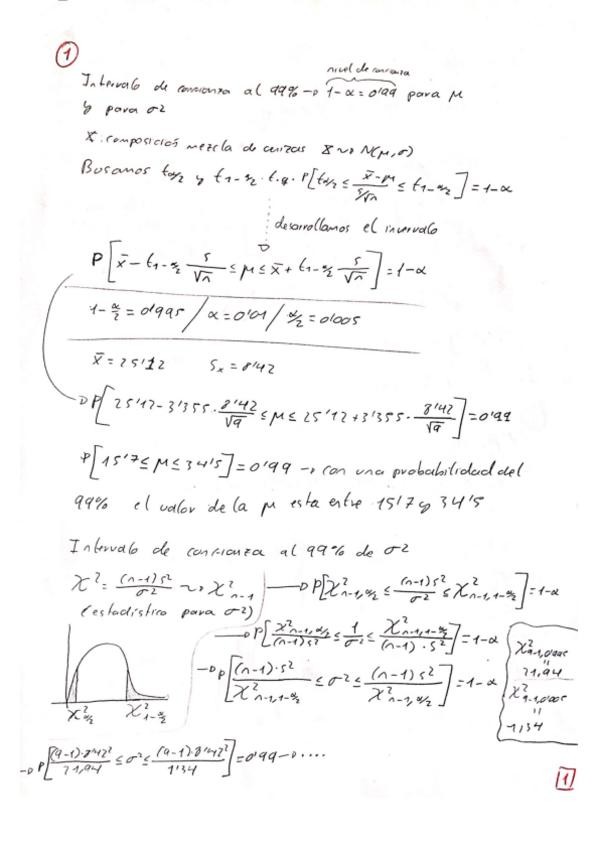 1
nivel de confianza
Intervalo de confianza al 99% → 1-α = 0'99 para μ
y para σ2
X: composición mezcla de cenizas X ~> N(μ,σ)
Buscamos tα/2 y t1-α/2 t.q. P[tα/2 ≤ (x̄-μ)/(s/√n) ≤ t1-α/2] = 1-α
desarrollamos el intervalo
P[x̄ - t1-α/2 s/√n ≤ μ ≤ x̄ + t1-α/2 s/√n] = 1-α
1-α/2 = 0'995 / α = 0'01 / α/2 = 0'005
x̄ = 25'12 Sx = 8'42
→ P[25'12 - 3'355 · 8'42/√9 ≤ μ ≤ 25'12 + 3'355 · 8'42/√9] = 0'99
P[15'7 ≤ μ ≤ 34'5] = 0'99 → con una probabilidad del
99% el valor de la μ esta entre 15'7 y 34'5
Intervalo de confianza al 99% de σ2
χ² = (n-1)s²/σ² ~> χ²n-1 → P[χ²n-1,α/2 ≤ (n-1)s²/σ² ≤ χ²n-1,1-α/2] = 1-α
(estadístico para σ2)
→ P[χ²n-1,α/2/(n-1)s² ≤ 1/σ² ≤ χ²n-1,1-α/2/(n-1)·s²] = 1-α
→ P[(n-1)·s²/χ²n-1,1-α/2 ≤ σ² ≤ (n-1)s²/χ²n-1,α/2] = 1-α
21,94
1,34
χ²α/2 χ²1-α/2
→ P[(9-1)·8'42²/21,94 ≤ σ² ≤ (9-1)·8'42²/1'34] = 0'99 → ....
1